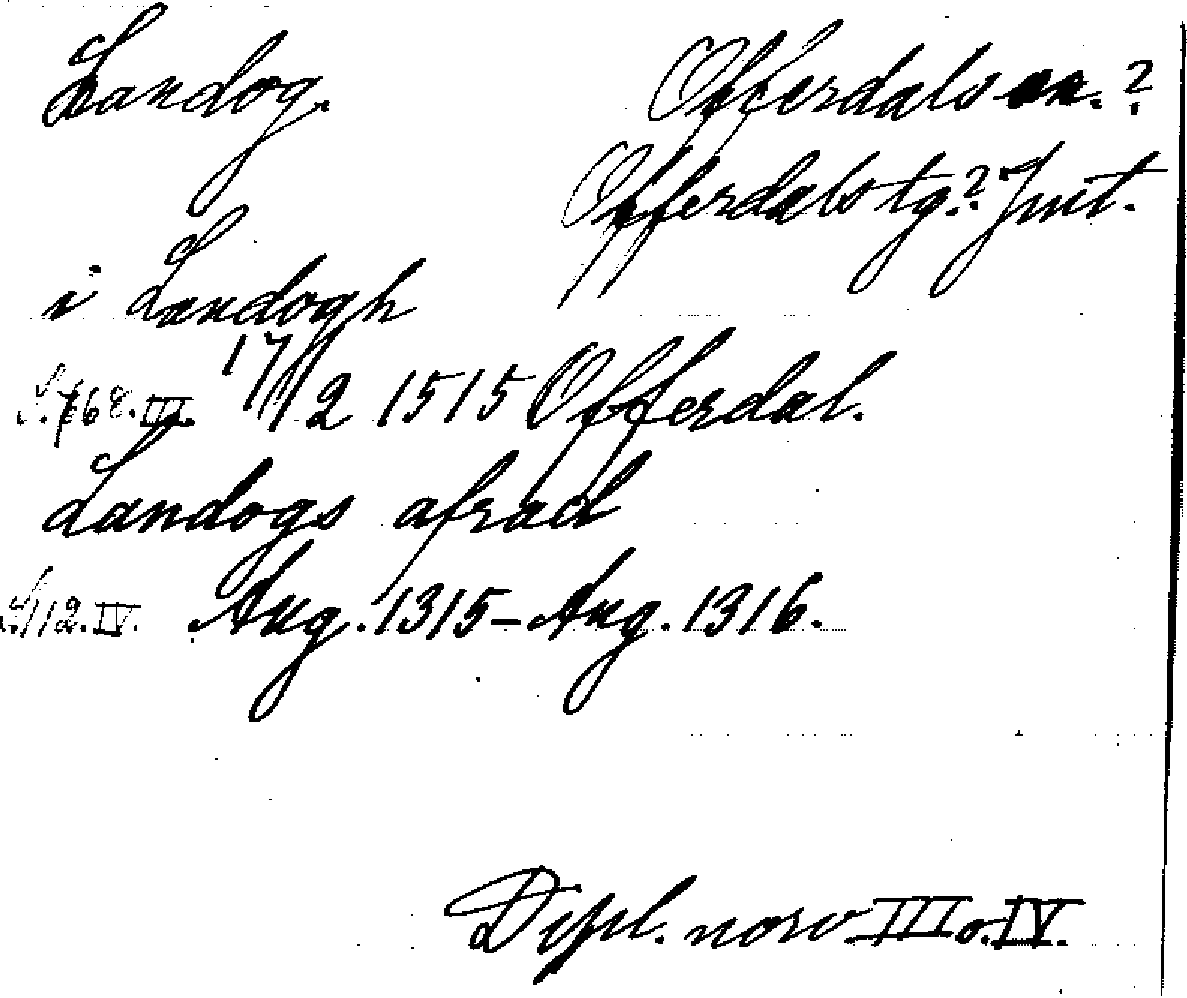 Landog. Offerdals sn. ?
Offerdals tg.? Jmt.
i Landogh
S. 768. III. 17/12 1515 Offerdal.
Landogs afrad
S. 112. IV. Aug. 1315 – Aug. 1316.
Dipl. norv III o. IV.